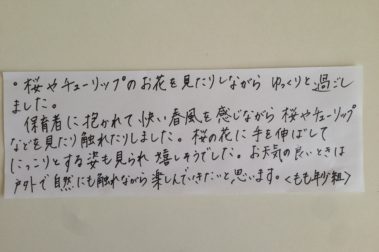 ・桜やチューリップのお花を見たりしながら ゆっくりと過ごし
ました。
保育者に抱かれて快い春風を感じながら桜やチューリップ
などを見たり触れたりしました。桜の花に手を伸ばして
にっこりとする姿も見られ嬉しそうでした。お天気の良いときは
戸外で自然にも触れながら楽しんでいきたいと思います。<もも年少組>